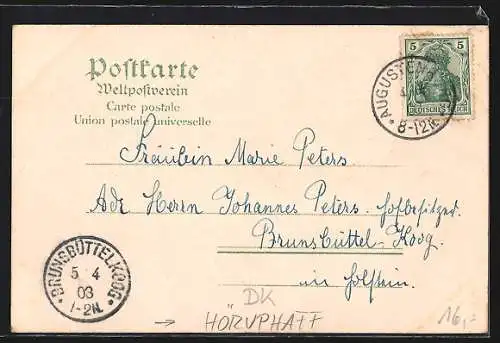 Postkarte
Weltpostverein
Carte postale
Union postale universelle
5 5
DEUTSCHES REICH
AUGUSTENB
8-12N.
Fräulein Marie Peters
Adr. Herrn Johannes Peters. Hofbesitzer.
Brunsbüttel-Koog.
in Holstein.
BRUNSBÜTTELKOOG
5 4
03
1-2N.
DK
→ HÖRUPHAFF
16,-